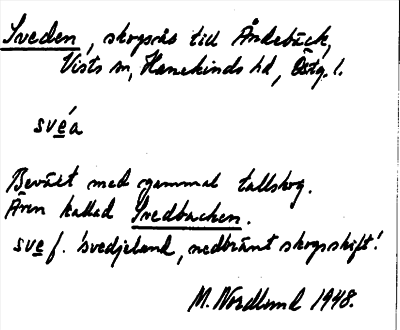 Sveden, skogsås till Åndebäck,
Vists sn, Hanekinds hd, Östg. l.
svéa
Beväxt med gammal tallskog.
Även kallad Svedbacken.
sve f. 'svedjeland, nedbränt skogsskift'.
M. Nordlund 1948.